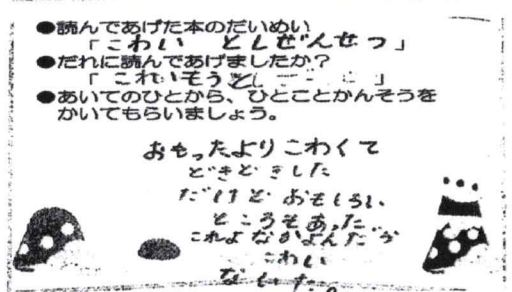 ●読んであげた本のだいめい
「こわい としぜんせつ」
●だれに読んであげましたか?
「これいそうど
●あいてのひとから、ひとことかんそうを
かいてもらいましょう。
おもったよりこわくて
どきどきした
だけど おもしろい
ところもあった。
こわい